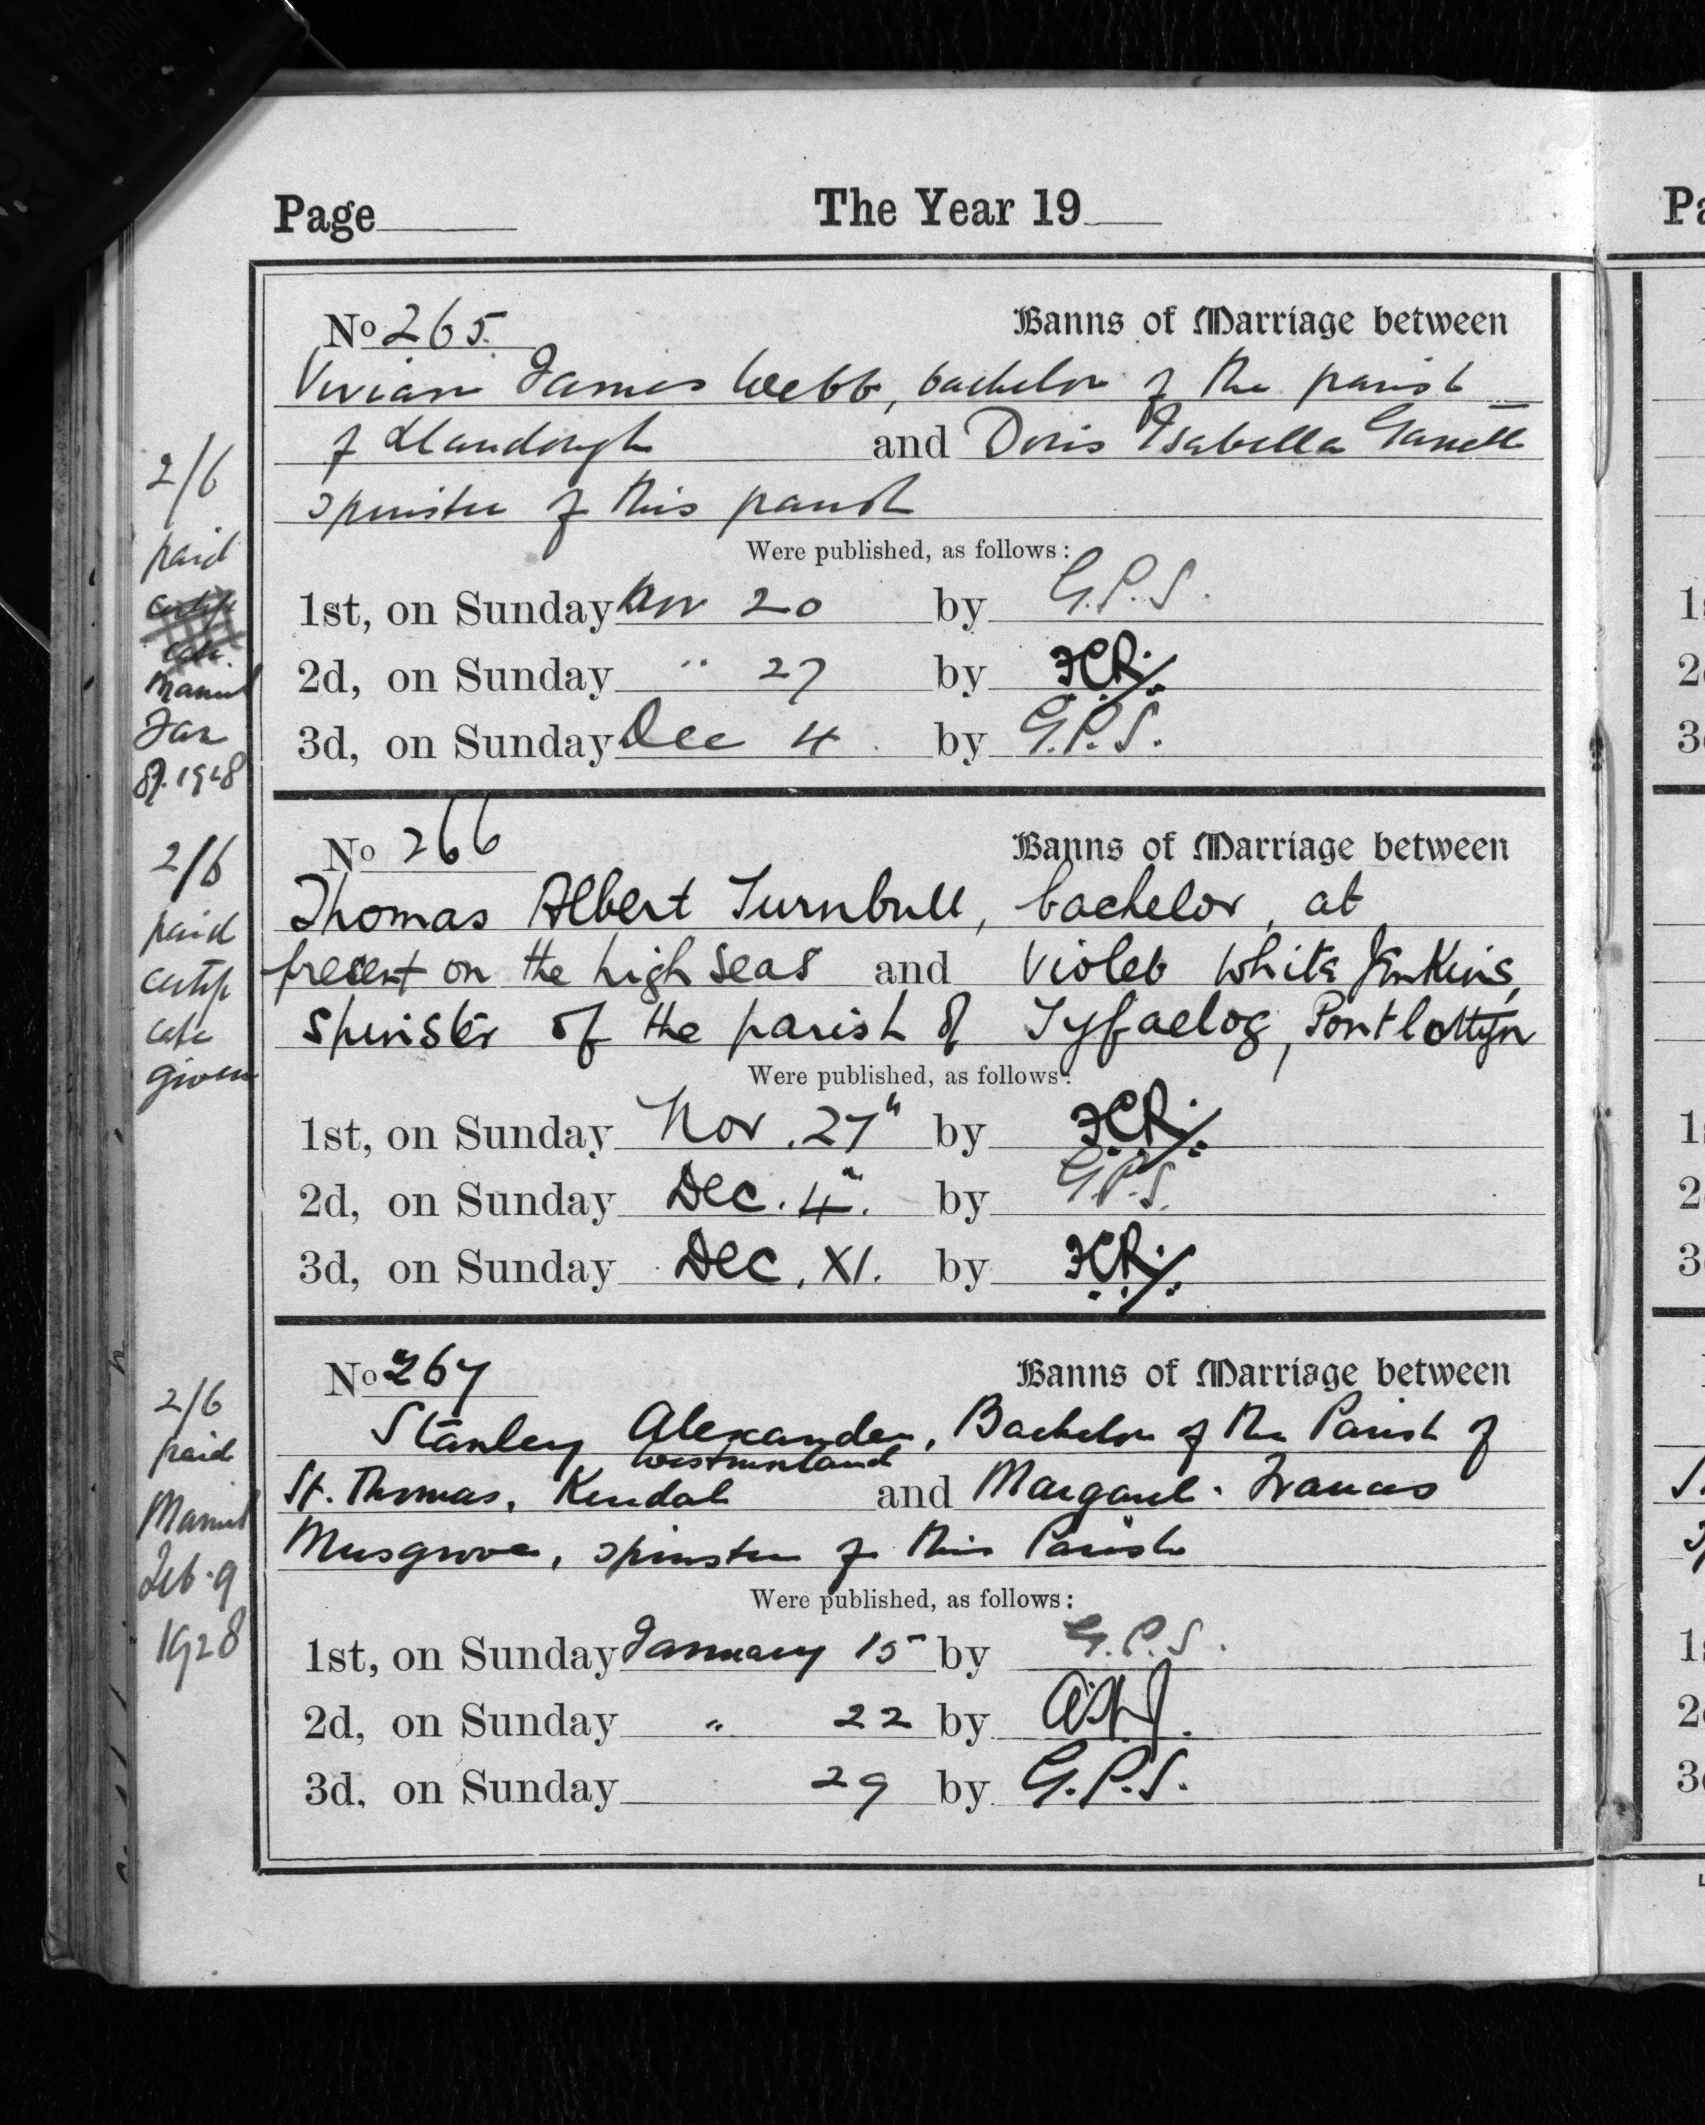 Page The Year 19
No 265. Banns of Marriage between
Vivian James Webb, bachelor of the parish
of Llandough and Doris Isabella Garrett
spinster of this parish
Were published, as follows:
1st, on Sunday Nov 20 by G.P.S.
2d, on Sunday " 27 by
3d, on Sunday Dec 4. by G.P.S.
2/6
paid
Married
Jan
1928
No 266 Banns of Marriage between
Thomas Albert Turnbull, bachelor, at
present on the high seas and Violet White Jenkins,
spinster of the parish of Tyfaelog, Pontlottyn
Were published, as follows:
1st, on Sunday Nov. 27" by
2d, on Sunday Dec. 4". by G.P.S.
3d, on Sunday Dec. XI. by
2/6
paid
certifi
cate
given
No 267 Banns of Marriage between
Stanley Alexander, Bachelor of the Parish of
Westmorland
St. Thomas, Kendal and Margaret Frances
Musgrove, spinster of this Parish
Were published, as follows:
1st, on Sunday January 15 by G.P.S.
2d, on Sunday " 22 by
3d, on Sunday 29 by G.P.S.
2/6
paid
Married
Feb. 9
1928